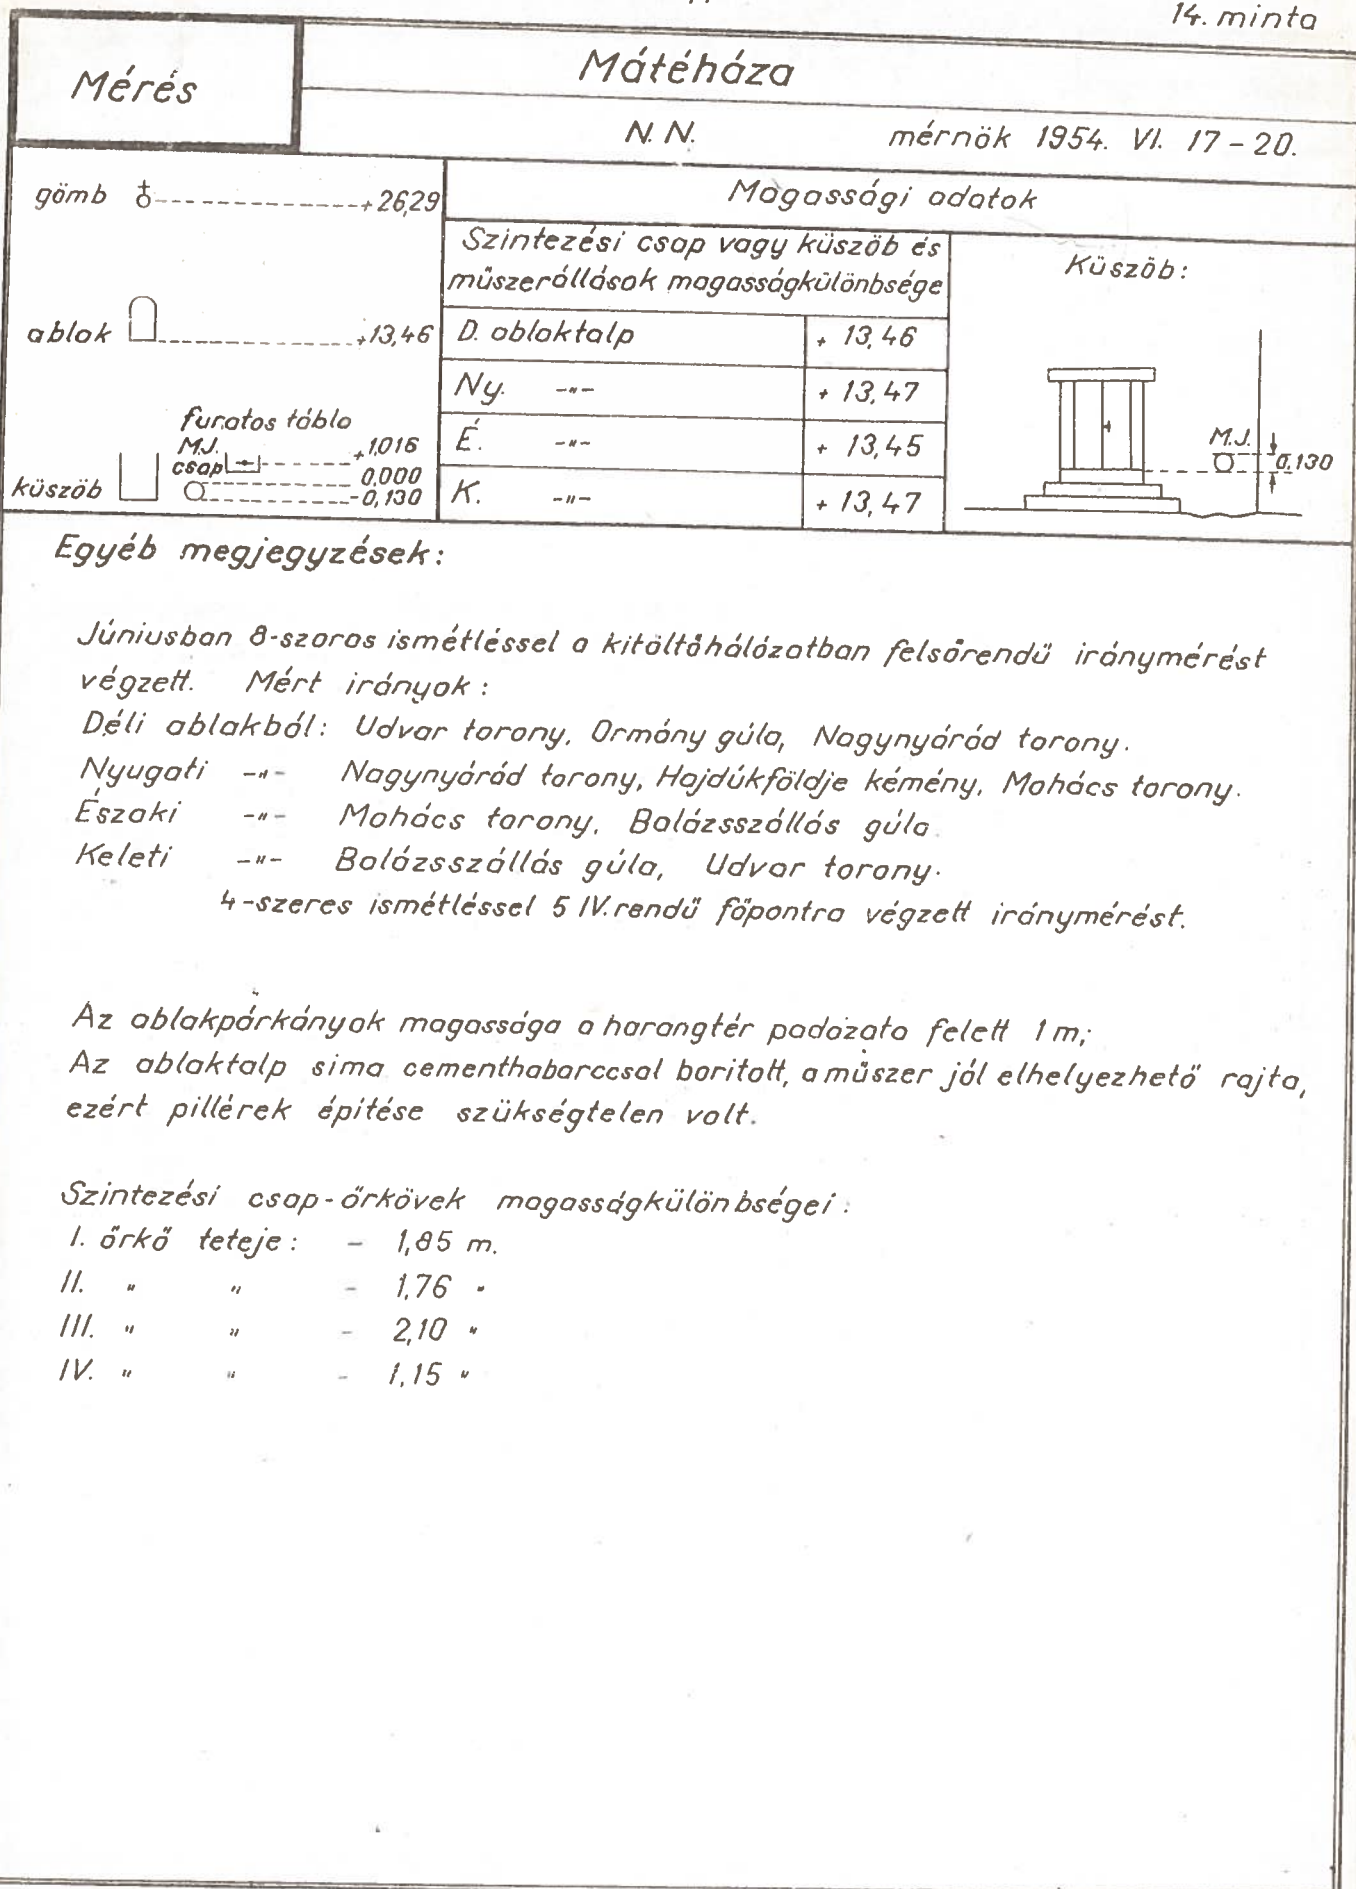 14. minta
Mérés
Mátéháza
N. N. mérnök 1954. VI. 17 - 20.
gömb +26,29
ablak +13,46
furatos tábla
M.J. +1,016
csap 0,000
küszöb -0,130
Magassági adatok
Szintezési csap vagy küszöb és
műszerállások magasságkülönbsége
D. ablaktalp + 13,46
Ny. -"- + 13,47
É. -"- + 13,45
K. -"- + 13,47
Küszöb:
M.J.
0,130
Egyéb megjegyzések:
Júniusban 8-szoros ismétléssel a kitöltőhálózatban felsőrendű iránymérést
végzett. Mért irányok:
Déli ablakból: Udvar torony, Ormány gúla, Nagynyárád torony.
Nyugati -"- Nagynyárád torony, Hajdúkföldje kémény, Mohács torony.
Északi -"- Mohács torony, Balázsszállás gúla.
Keleti -"- Balázsszállás gúla, Udvar torony.
4-szeres ismétléssel 5 IV. rendű főpontra végzett iránymérést.
Az ablakpárkányok magassága a harangtér padozata felett 1 m;
Az ablaktalp sima cementhabarccsal borított, a műszer jól elhelyezhető rajta,
ezért pillérek építése szükségtelen volt.
Szintezési csap-őrkövek magasságkülönbségei:
I. őrkő teteje: - 1,85 m.
II. " " - 1,76 "
III. " " - 2,10 "
IV. " " - 1,15 "